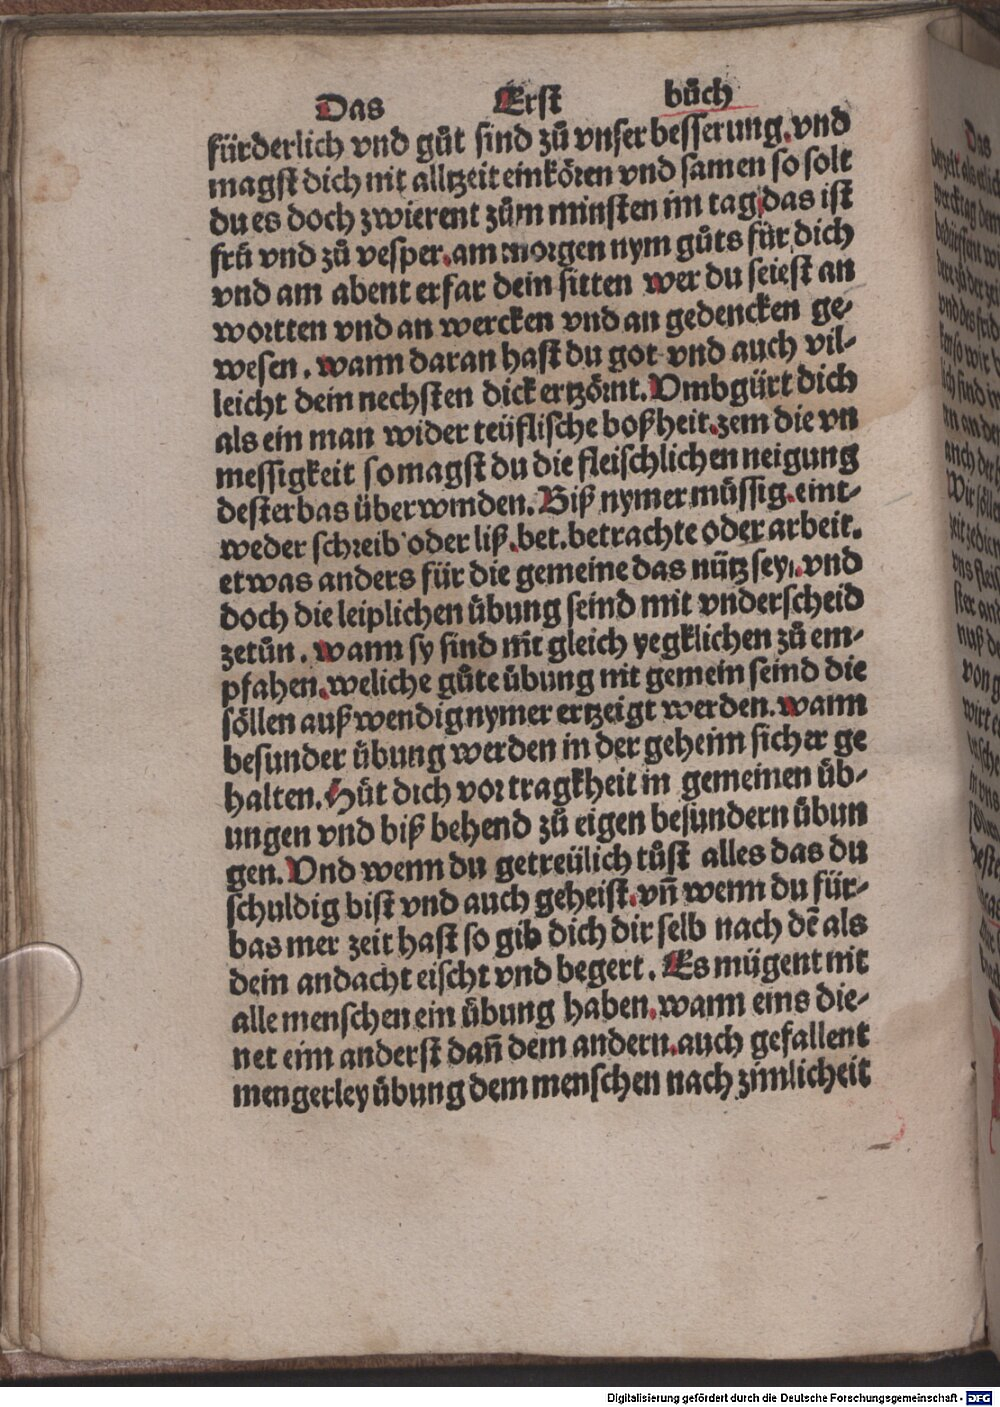 Das Erst bůch
fürderlich vnd gůt sind zů vnser besserung. vnd
magst dich nit alltzeit einkören vnd samen so solt
du es doch zwierent zům minsten im tag das ist
frü vnd zů vesper. am morgen nym gůts für dich
vnd am abent erfar dein sitten wer du seiest an
wortten vnd an wercken vnd an gedencken ge⸗
wesen. wann daran hast du got vnd auch vil⸗
leicht dein nechsten dick ertzörnt. Vmbgürt dich
als ein man wider teüflische boßheit. zem die vn
messigkeit so magst du die fleischlichen neigung
dester bas überwinden. Biß nymer müssig. eint⸗
weder schreib oder liß. bet. betrachte oder arbeit.
etwas anders für die gemeine das nütz sey. vnd
doch die leiplichen übung seind mit vnderscheid
zetůn. wann sy sind nit gleich yegklichen zů em⸗
pfahen. weliche gůte übung nit gemein seind die
söllen außwendig nymer ertzeigt werden. wann
besunder übung werden in der geheim sicher ge
halten. Hüt dich vor tragkheit in gemeinen üb⸗
ungen vnd biß behend zů eigen besundern übun
gen. Vnd wenn du getreülich tůst alles das du
schuldig bist vnd auch geheist. vn̄ wenn du für⸗
bas mer zeit hast so gib dich dir selb nach dē als
dein andacht eischt vnd begert. Es mügent nit
alle menschen ein übung haben. wann eins die⸗
net eim anderst dan̄ dem andern. auch gefallent
mengerley übung dem menschen nach zimlicheit
Das
Digitalisierung gefördert durch die Deutsche Forschungsgemeinschaft - DFG